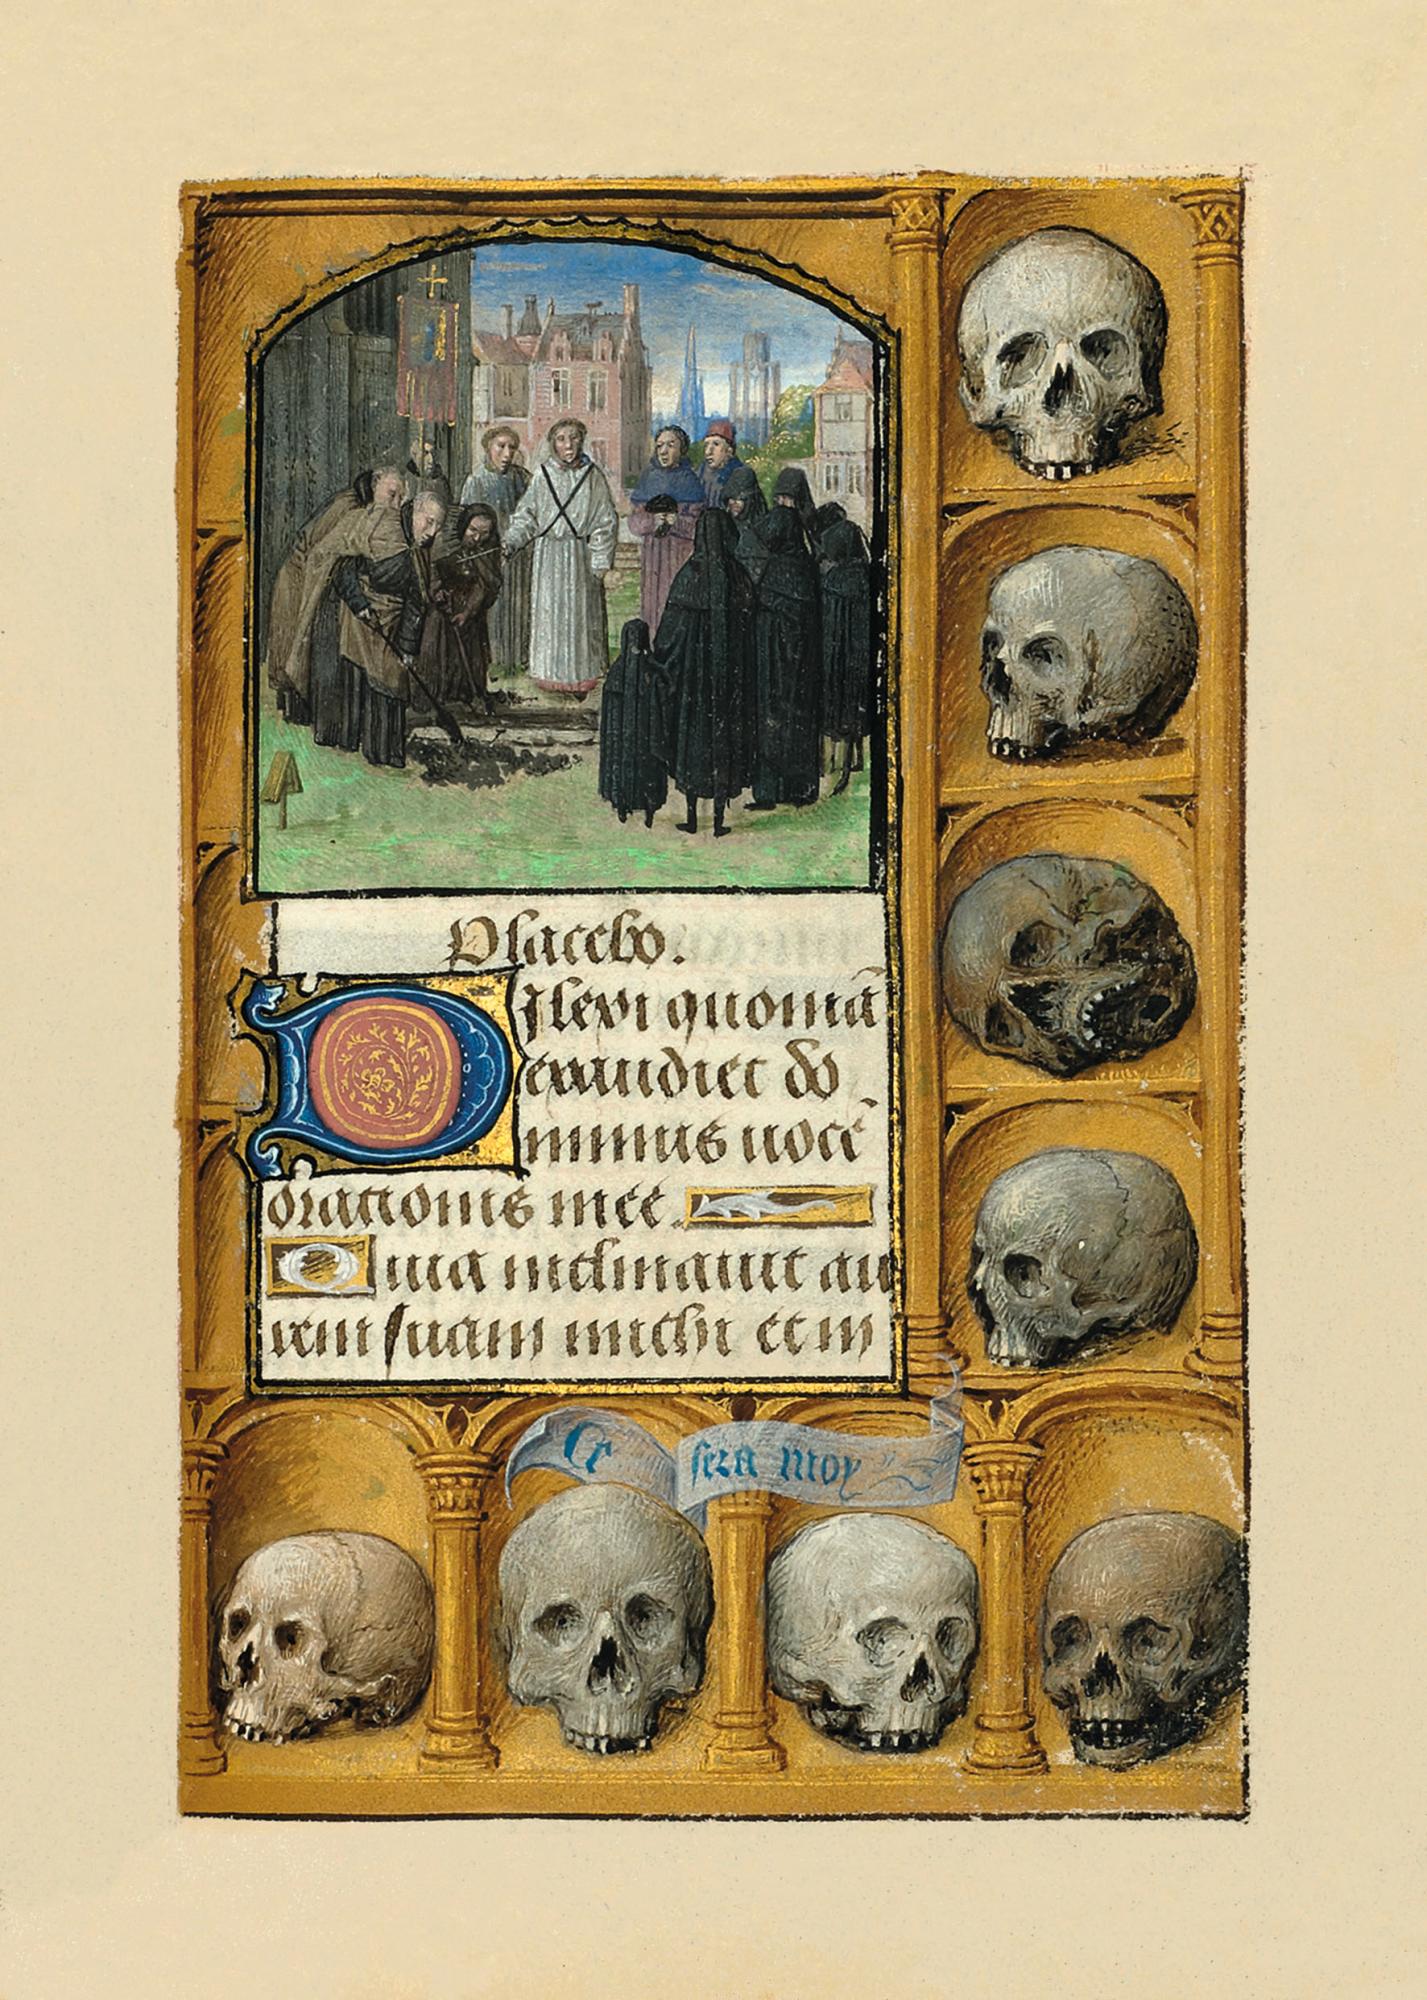 Placebo.
Dilexi quoniã
exaudiet do
minus vocẽ
orationis mee.
Quia inclinavit au
rem suam michi et in
Ce sera moy